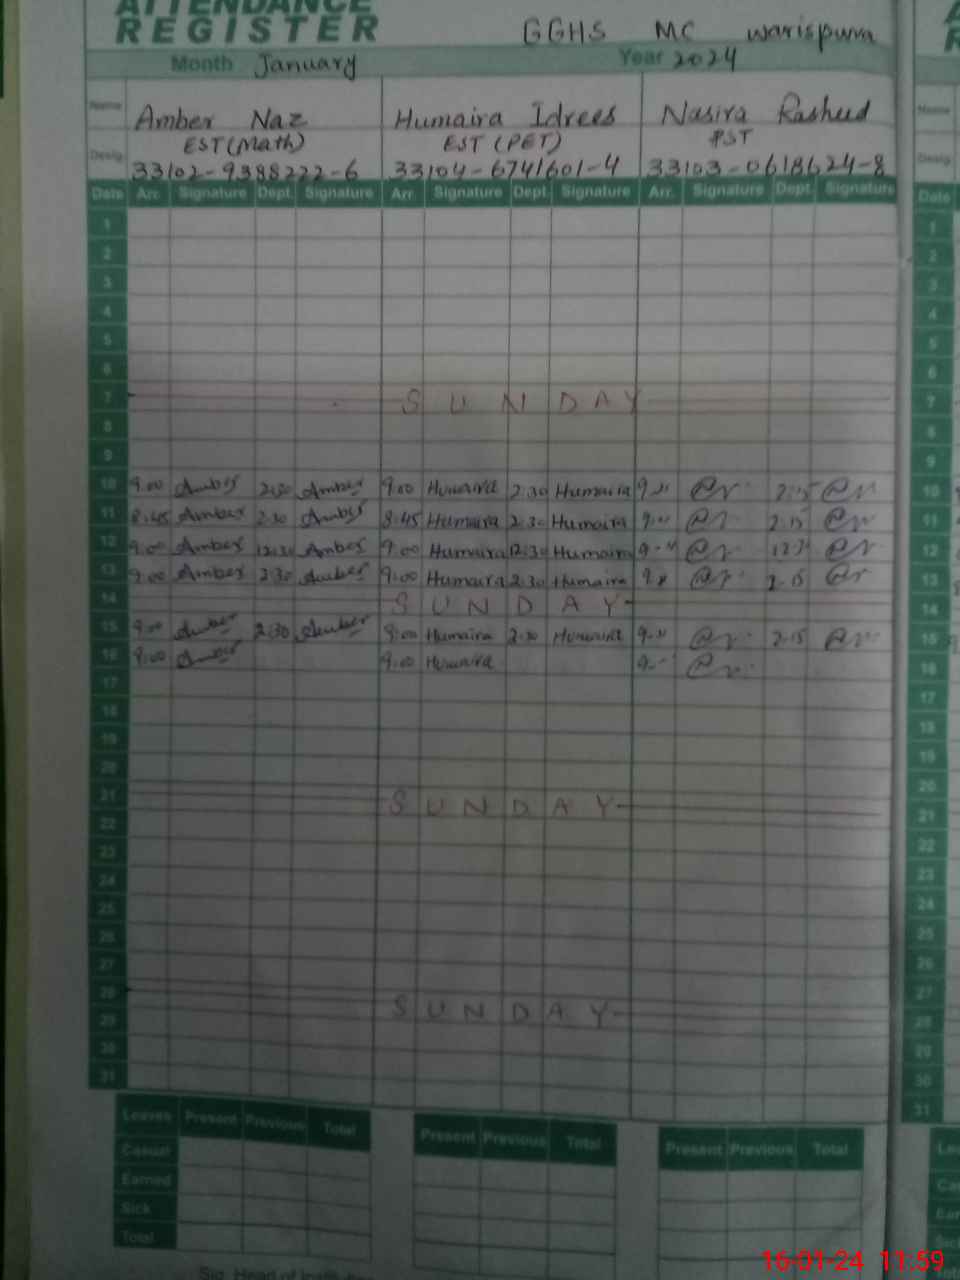 ATTENDANCE
REGISTER GGHS MC warispura
Month January Year 2024
Name Amber Naz Humaira Idrees Nasira Rasheed Name
Desig. EST(Math) EST (PET) PST Desig.
33102-9388222-6 33104-6741601-4 33103-0618624-8
Date Arr. Signature Dept. Signature Arr. Signature Dept. Signature Arr. Signature Dept. Signature Date
1 1
2 2
3 3
4 4
5 5
6 6
7 SUNDAY 7
8 8
9 9
10 9:00 Amber 2:30 Amber 9:00 Humaira 2:30 Humaira 2:15 10
11 8:45 Amber 2:30 Amber 8:45 Humaira 2:30 Humaira 2:15 11
12 9:00 Amber 12:30 Amber 9:00 Humaira 12:30 Humaira 12
13 9:00 Amber 2:30 Amber 9:00 Humaira 2:30 Humaira 2:15 13
14 SUNDAY 14
15 9:00 Amber 2:30 Amber 9:00 Humaira 2:30 Humaira 2:15 15
16 9:00 Amber 9:00 Humaira 16
17 17
18 18
19 19
20 20
21 SUNDAY 21
22 22
23 23
24 24
25 25
26 26
27 27
28 SUNDAY 28
29 29
30 30
31 31
Leaves Present Previous Total Present Previous Total Present Previous Total
Casual
Earned
Sick
Total
Sig. Head of
16-01-24 11:59